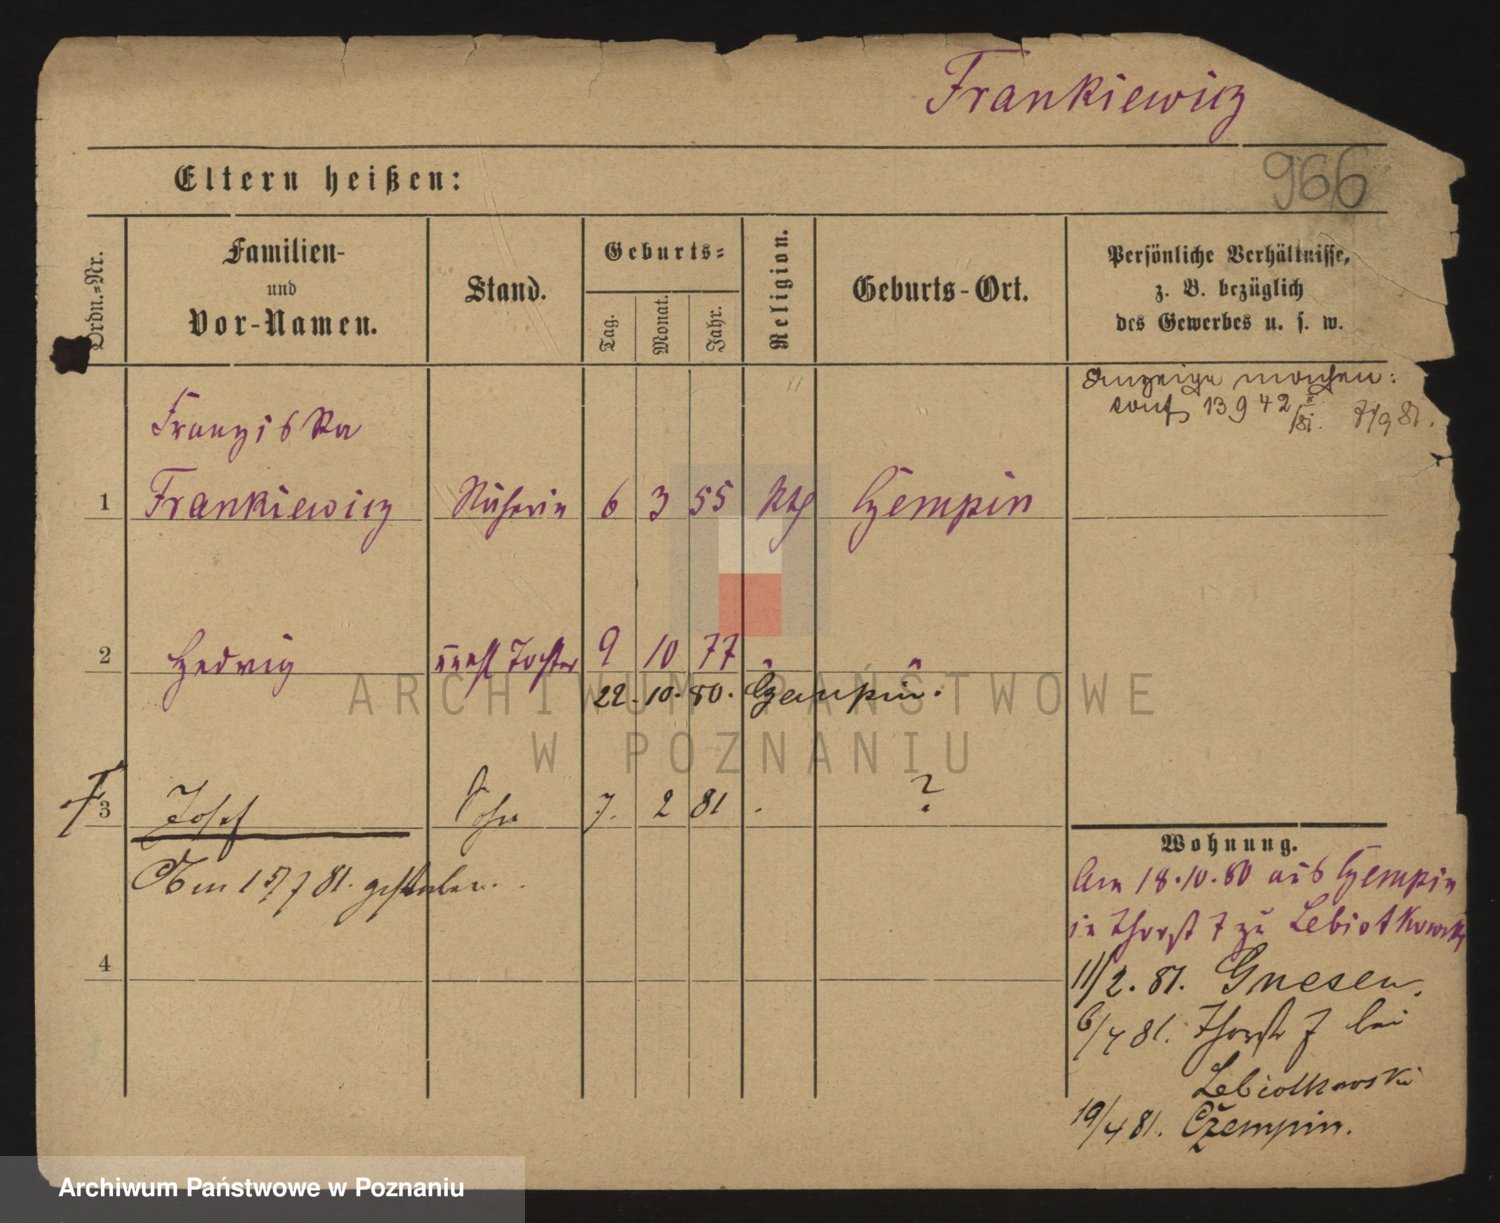 Frankiewicz
966
Eltern heißen:
Ordn.-Nr.
Familien-
und
Vor-Namen.
Stand.
Geburts-
Tag.
Monat.
Jahr.
Religion.
Geburts-Ort.
Persönliche Verhältnisse,
z. B. bezüglich
des Gewerbes u. s. w.
Anzeige machen:
13942 7/9 81.
Franziska
1 Frankiewicz Näherin 6 3 55 kth Czempin
2 Hedwig unehl Tochter 9 10 77 " "
22.10.80. Czempin.
3 Josef Sohn 7. 2 81 . ?
Am 15/7 81. gestorben.
4
Wohnung.
Am 18.10.80 aus Czempin
in Thorst 7 zu Lebiotkowski
11/2.81. Gnesen.
6/4 81. Thorstr 7 bei
Lebiotkowski
19/4 81. Czempin.
ARCHIWUM PAŃSTWOWE
W POZNANIU
Archiwum Państwowe w Poznaniu